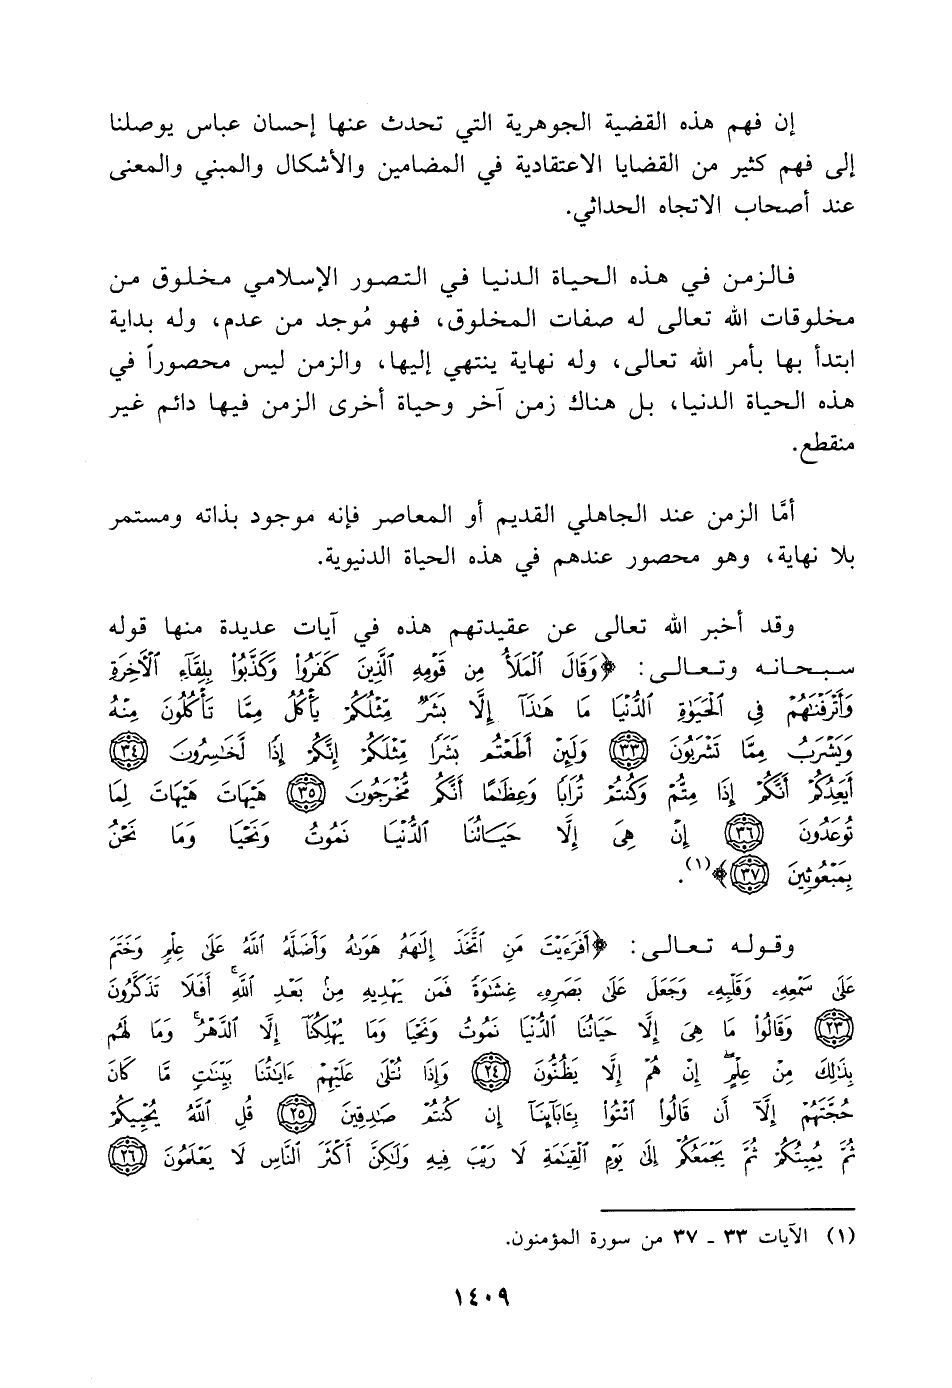 إن فهم هذه القضية الجوهرية التي تحدث عنها إحسان عباس يوصلنا
إلى فهم كثير من القضايا الاعتقادية في المضامين والأشكال والمبني والمعنى
عند أصحاب الاتجاه الحداثي.
فالزمن في هذه الحياة الدنيا في التصور الإسلامي مخلوق من
مخلوقات الله تعالى له صفات المخلوق، فهو مُوجد من عدم، وله بداية
ابتدأ بها بأمر الله تعالى، وله نهاية ينتهي إليها، والزمن ليس محصوراً في
هذه الحياة الدنيا، بل هناك زمن آخر وحياة أخرى الزمن فيها دائم غير
منقطع.
أمَّا الزمن عند الجاهلي القديم أو المعاصر فإنه موجود بذاته ومستمر
بلا نهاية، وهو محصور عندهم في هذه الحياة الدنيوية.
وقد أخبر الله تعالى عن عقيدتهم هذه في آيات عديدة منها قوله
سبحانه وتعالى: ﴿وَقَالَ ٱلْمَلَأُ مِن قَوْمِهِ ٱلَّذِينَ كَفَرُوا۟ وَكَذَّبُوا۟ بِلِقَآءِ ٱلْأَخِرَةِ
وَأَتْرَفْنَٰهُمْ فِى ٱلْحَيَوٰةِ ٱلدُّنْيَا مَا هَٰذَآ إِلَّا بَشَرٌ مِّثْلُكُمْ يَأْكُلُ مِمَّا تَأْكُلُونَ مِنْهُ
وَيَشْرَبُ مِمَّا تَشْرَبُونَ ٣٣ وَلَئِنْ أَطَعْتُم بَشَرًا مِّثْلَكُمْ إِنَّكُمْ إِذًا لَّخَٰسِرُونَ ٣٤
أَيَعِدُكُمْ أَنَّكُمْ إِذَا مِتُّمْ وَكُنتُمْ تُرَابًا وَعِظَٰمًا أَنَّكُم مُّخْرَجُونَ ٣٥ هَيْهَاتَ هَيْهَاتَ لِمَا
تُوعَدُونَ ٣٦ إِنْ هِىَ إِلَّا حَيَاتُنَا ٱلدُّنْيَا نَمُوتُ وَنَحْيَا وَمَا نَحْنُ
بِمَبْعُوثِينَ ٣٧﴾(١).
وقوله تعالى: ﴿أَفَرَءَيْتَ مَنِ ٱتَّخَذَ إِلَٰهَهُۥ هَوَىٰهُ وَأَضَلَّهُ ٱللَّهُ عَلَىٰ عِلْمٍ وَخَتَمَ
عَلَىٰ سَمْعِهِۦ وَقَلْبِهِۦ وَجَعَلَ عَلَىٰ بَصَرِهِۦ غِشَٰوَةً فَمَن يَهْدِيهِ مِنۢ بَعْدِ ٱللَّهِ ۚ أَفَلَا تَذَكَّرُونَ
٢٣ وَقَالُوا۟ مَا هِىَ إِلَّا حَيَاتُنَا ٱلدُّنْيَا نَمُوتُ وَنَحْيَا وَمَا يُهْلِكُنَآ إِلَّا ٱلدَّهْرُ ۚ وَمَا لَهُم
بِذَٰلِكَ مِنْ عِلْمٍ ۖ إِنْ هُمْ إِلَّا يَظُنُّونَ ٢٤ وَإِذَا تُتْلَىٰ عَلَيْهِمْ ءَايَٰتُنَا بَيِّنَٰتٍ مَّا كَانَ
حُجَّتَهُمْ إِلَّآ أَن قَالُوا۟ ٱئْتُوا۟ بِـَٔابَآئِنَآ إِن كُنتُمْ صَٰدِقِينَ ٢٥ قُلِ ٱللَّهُ يُحْيِيكُمْ
ثُمَّ يُمِيتُكُمْ ثُمَّ يَجْمَعُكُمْ إِلَىٰ يَوْمِ ٱلْقِيَٰمَةِ لَا رَيْبَ فِيهِ وَلَٰكِنَّ أَكْثَرَ ٱلنَّاسِ لَا يَعْلَمُونَ ٢٦
(١) الآيات ٣٣ - ٣٧ من سورة المؤمنون.
١٤٠٩